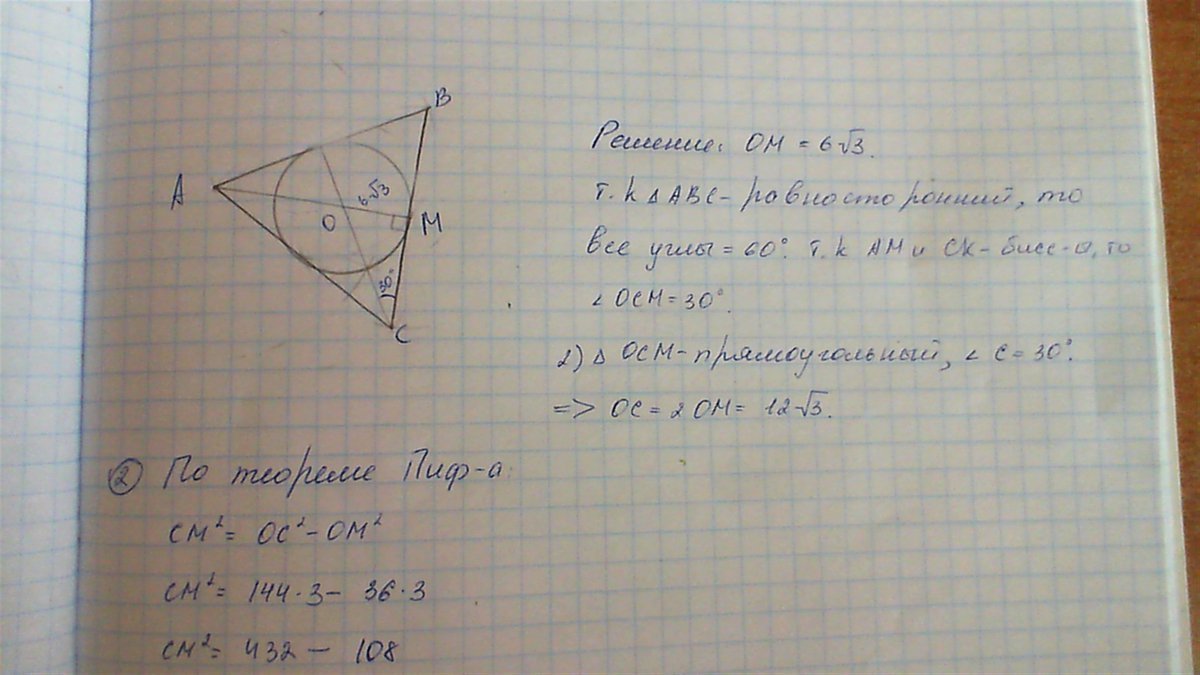 B
A
6√3
O
M
30°
C
Решение: OM = 6√3.
Т.к △ABC - равносторонний, то
все углы = 60°. Т.к AM и CK - бисс-ы, то
∠OCM = 30°.
2) △ OCM - прямоугольный, ∠ C = 30°.
=> OC = 2 OM = 12√3.
② По теореме Пиф-а
CM² = OC² - OM²
CM² = 144·3 - 36·3
CM² = 432 - 108